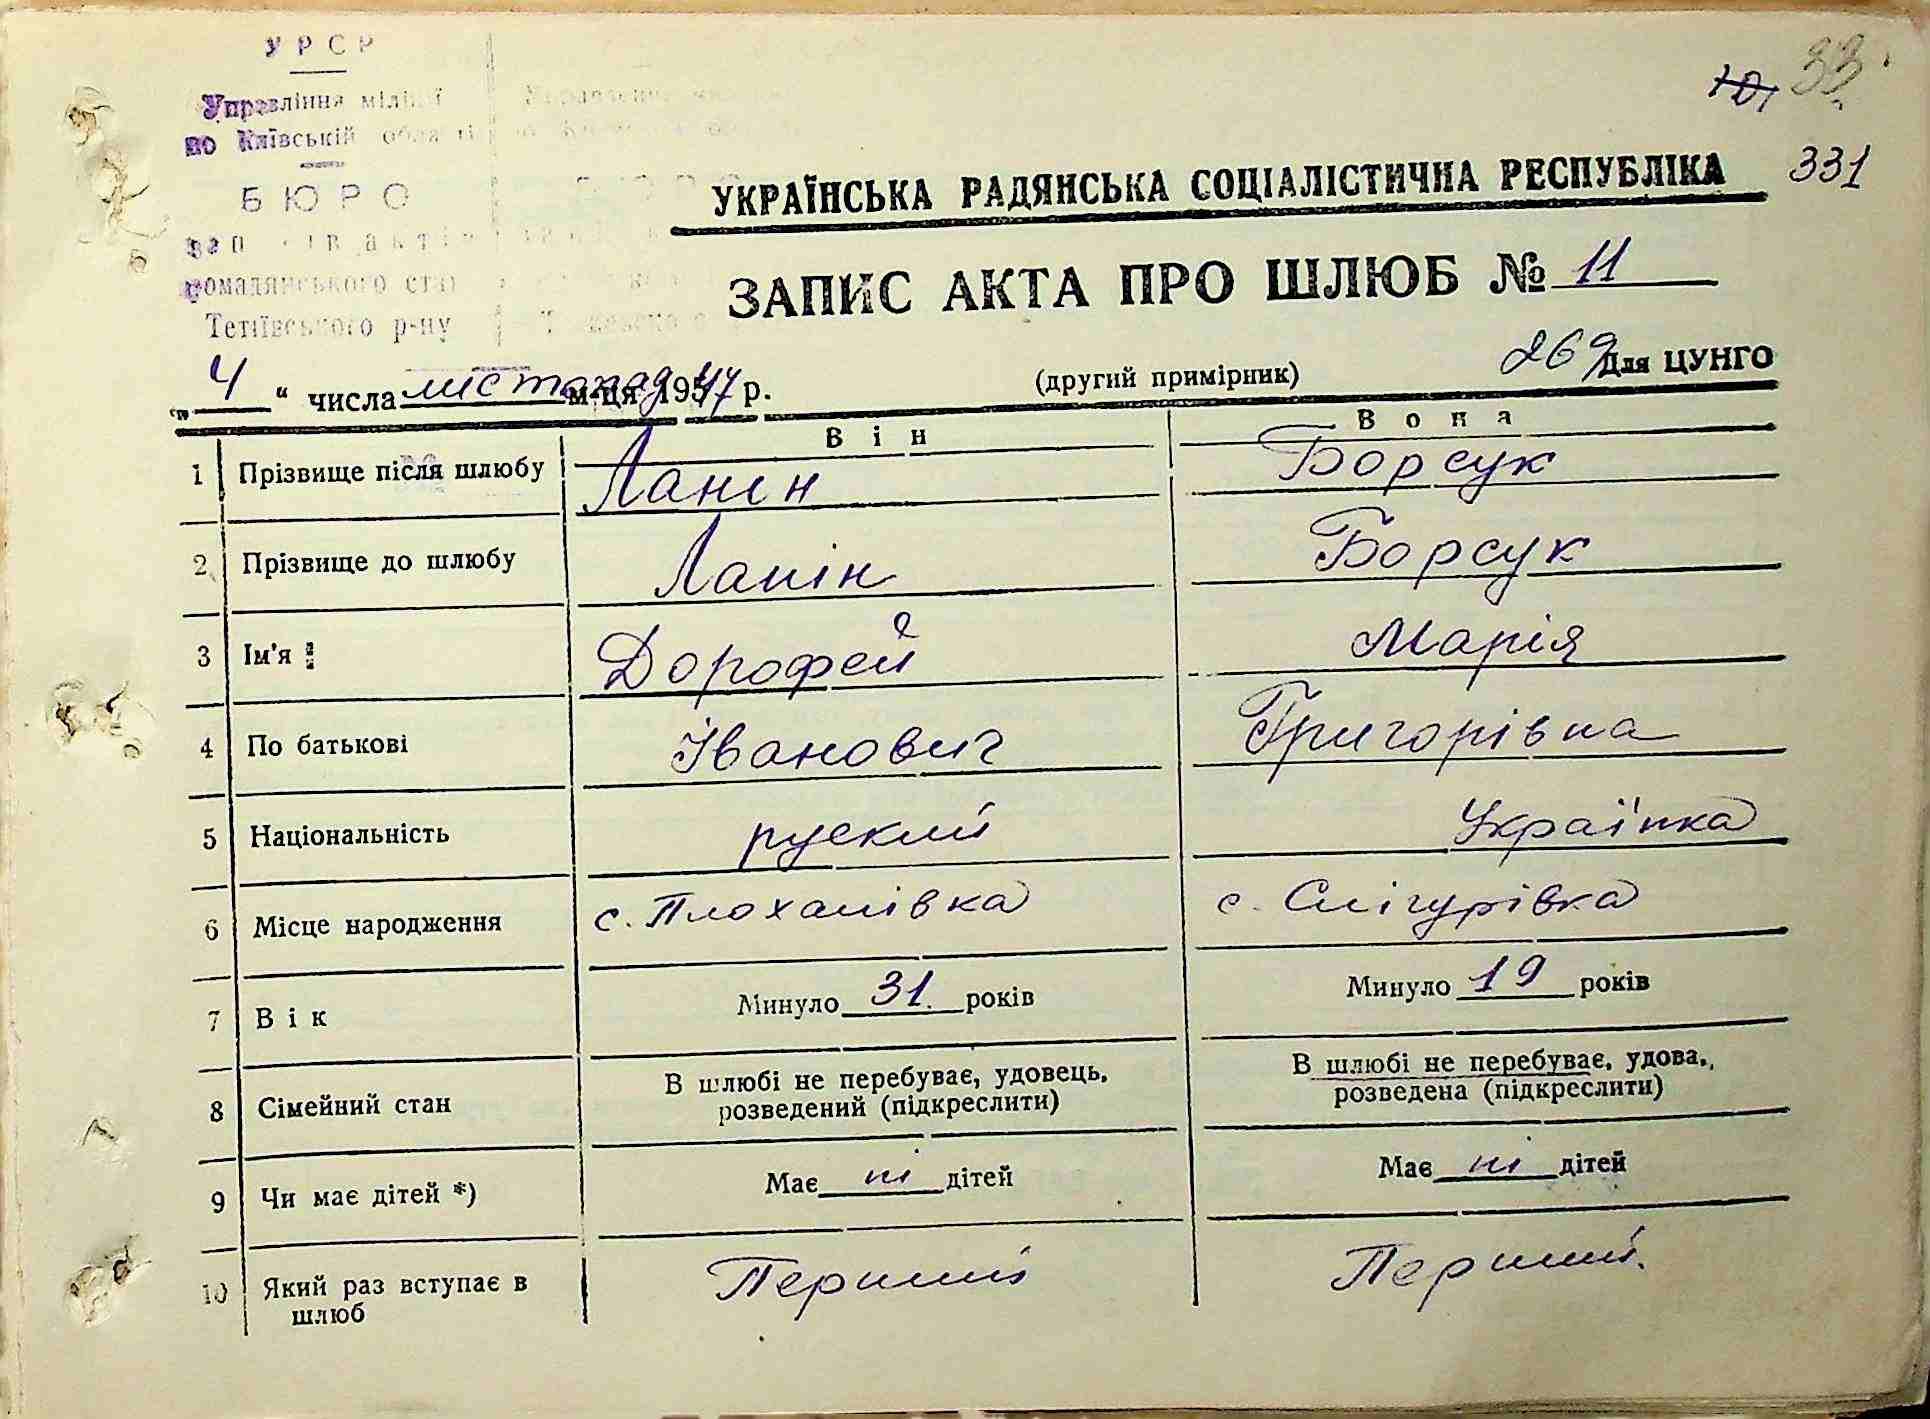 УРСР
Управління міліції
по Київській області
БЮРО
записів актів
громадянського стану
Тетіївського р-ну
33.
331
УКРАЇНСЬКА РАДЯНСЬКА СОЦІАЛІСТИЧНА РЕСПУБЛІКА
ЗАПИС АКТА ПРО ШЛЮБ № 11
„ 4 “ числа листопад м-ця 1947 р. (другий примірник) 269 Для ЦУНГО
Він Вона
1 Прізвище після шлюбу Лапін Борсук
2 Прізвище до шлюбу Лапін Борсук
3 Ім'я Дорофей Марія
4 По батькові Іванович Григорівна
5 Національність руский Українка
6 Місце народження с. Плоханівка с. Снігурівка
7 Вік Минуло 31. років Минуло 19 років
8 Сімейний стан В шлюбі не перебуває, удовець, розведений (підкреслити) В шлюбі не перебуває, удова, розведена (підкреслити)
9 Чи має дітей *) Має ні дітей Має ні дітей
10 Який раз вступає в шлюб Перший Перший.